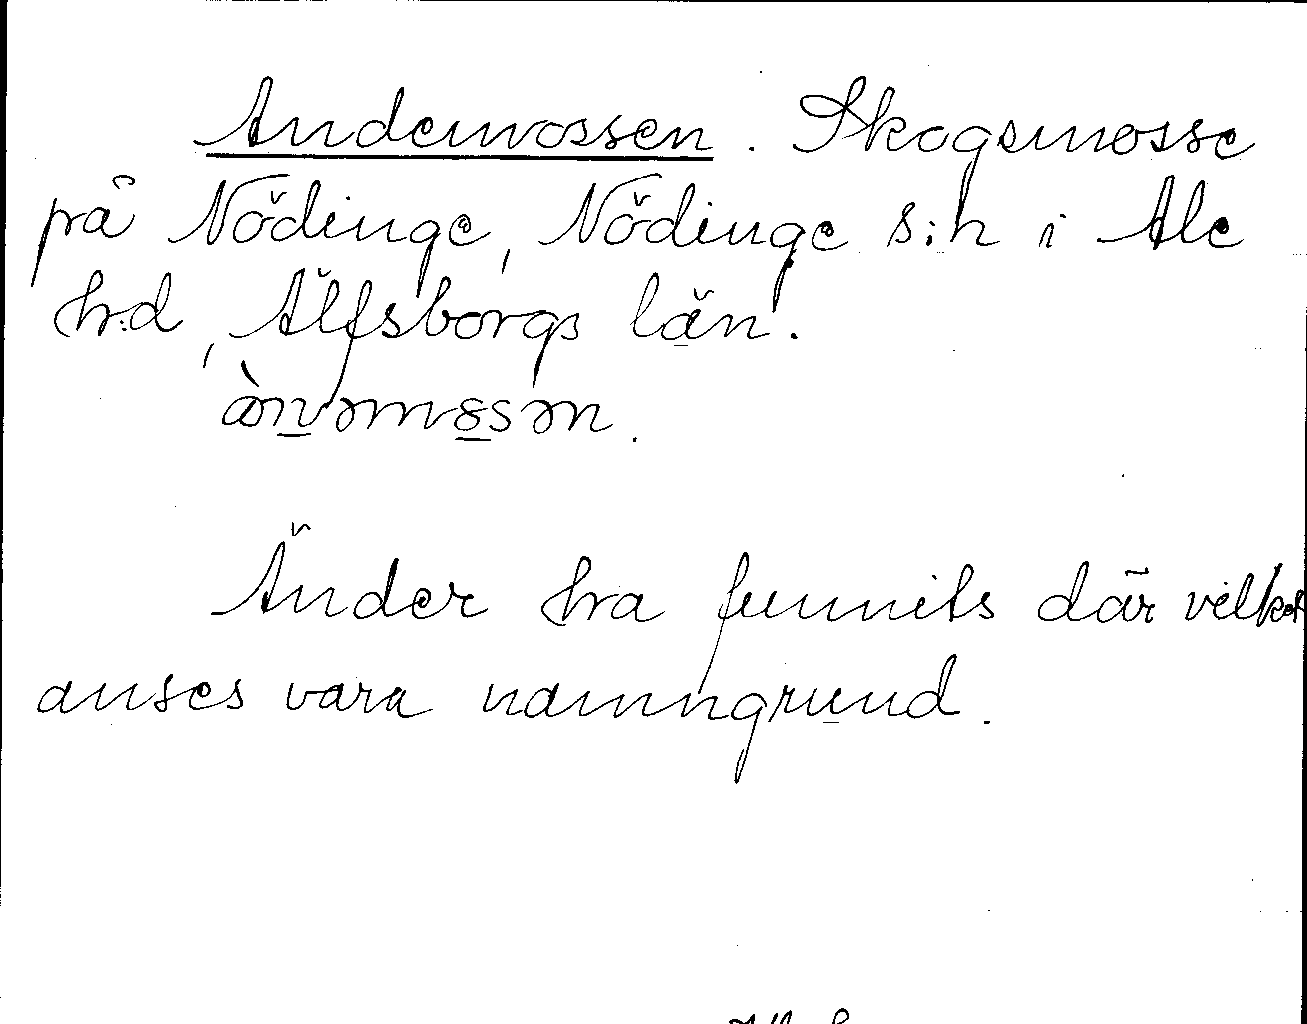 Andemossen. Skogsmosse
på Nödinge, Nödinge s:n i Ale
h:d, Älfsborgs län.
ànəmåsən.
Änder ha funnits där vilket
anses vara namngrund.